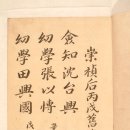 崇禎后丙戌舊
僉知沈台興
幼學張以愽
幼學田興國